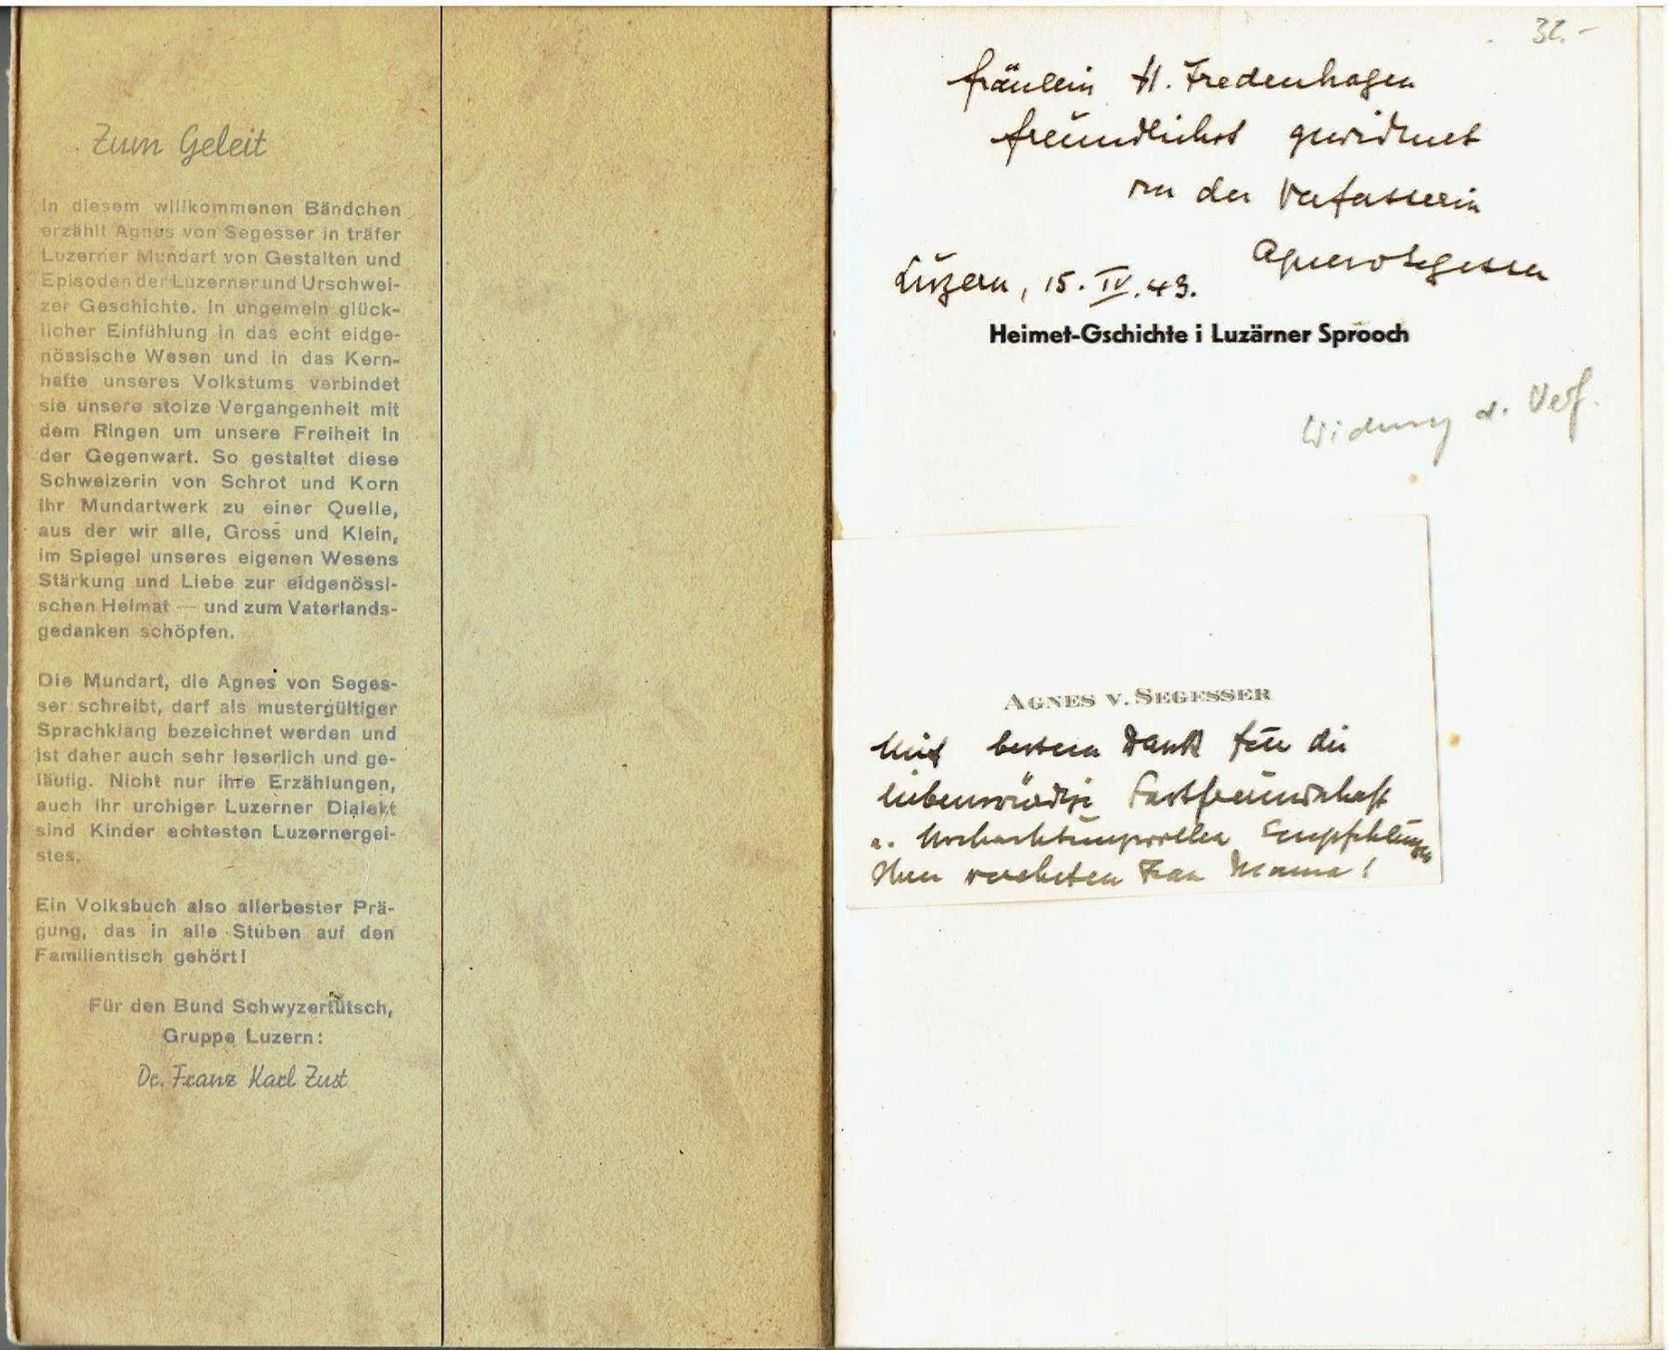 Zum Geleit
In diesem willkommenen Bändchen
erzählt Agnes von Segesser in träfer
Luzerner Mundart von Gestalten und
Episoden der Luzerner und Urschwei-
zer Geschichte. In ungemein glück-
licher Einfühlung in das echt eidge-
nössische Wesen und in das Kern-
hafte unseres Volkstums verbindet
sie unsere stolze Vergangenheit mit
dem Ringen um unsere Freiheit in
der Gegenwart. So gestaltet diese
Schweizerin von Schrot und Korn
ihr Mundartwerk zu einer Quelle,
aus der wir alle, Gross und Klein,
im Spiegel unseres eigenen Wesens
Stärkung und Liebe zur eidgenössi-
schen Heimat — und zum Vaterlands-
gedanken schöpfen.
Die Mundart, die Agnes von Seges-
ser schreibt, darf als mustergültiger
Sprachklang bezeichnet werden und
ist daher auch sehr leserlich und ge-
läufig. Nicht nur ihre Erzählungen,
auch ihr urchiger Luzerner Dialekt
sind Kinder echtesten Luzernergei-
stes.
Ein Volksbuch also allerbester Prä-
gung, das in alle Stuben auf den
Familientisch gehört!
Für den Bund Schwyzertütsch,
Gruppe Luzern:
Dr. Franz Karl Zust
32.-
Fräulein H. Fredenhagen
freundlichst gewidmet
von der Verfasserin
Agnes v Segesser
Luzern, 15. IV. 43.
Heimet-Gschichte i Luzärner Sprooch
Widmung d. Verf.
AGNES V. SEGESSER
Mit bestem Dank für die
liebenswürdige Gastfreundschaft
u. hochachtungsvollen Empfehlungen
Ihrer verehrten Frau Mama!